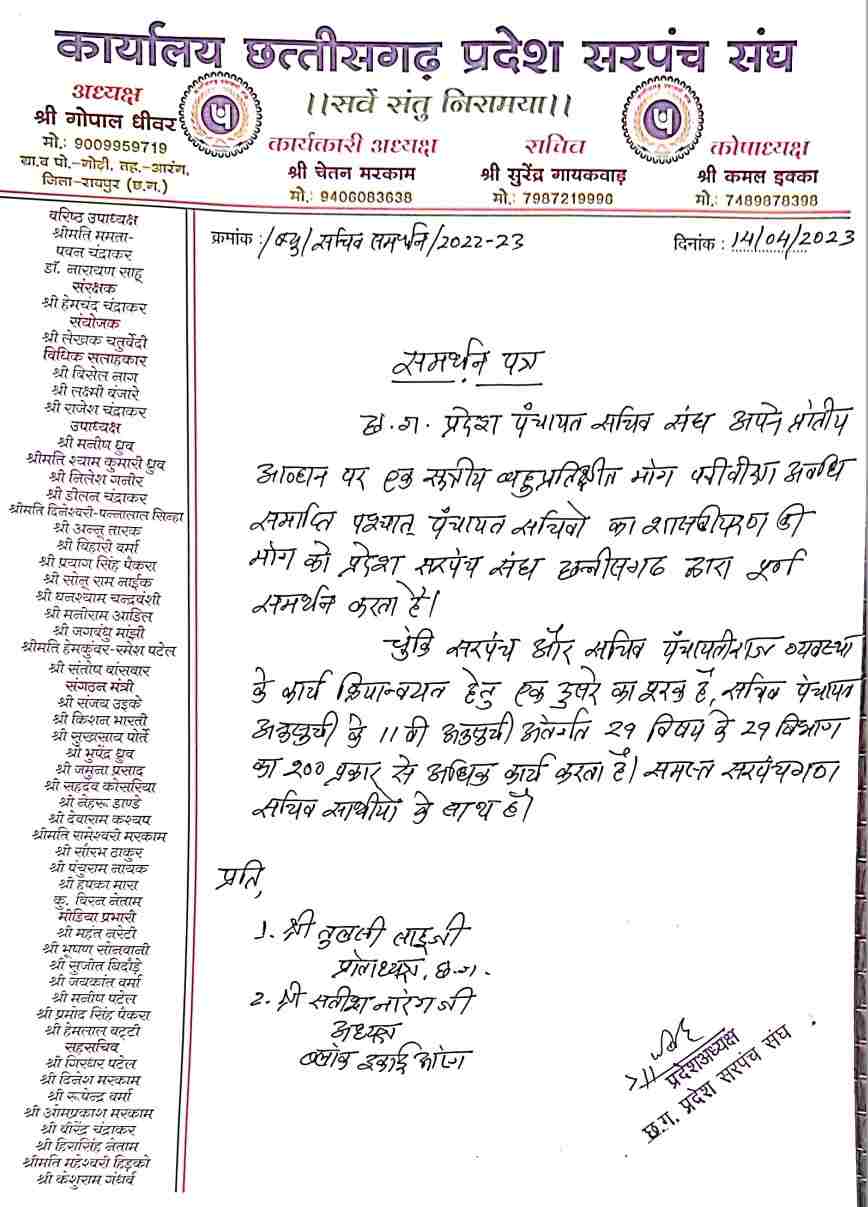 कार्यालय छत्तीसगढ़ प्रदेश सरपंच संघ
।।सर्वे संतु निरामया।।
प
प
अध्यक्ष
श्री गोपाल धीवर
मो.: 9009959719
ग्रा.व पो.-गोढ़ी, तह.-आरंग,
जिला-रायपुर (छ.ग.)
कार्यकारी अध्यक्ष
श्री चेतन मरकाम
मो.: 9406083638
सचिव
श्री सुरेंद्र गायकवाड़
मो.: 7987219996
कोपाध्यक्ष
श्री कमल इक्का
मो.: 7489878398
वरिष्ठ उपाध्यक्ष
श्रीमति ममता-
पवन चंद्राकर
डॉ. नारायण साहू
संरक्षक
श्री हेमचंद्र चंद्राकर
संयोजक
श्री लेखक चतुर्वेदी
विधिक सलाहकार
श्री बिसेल नाग
श्री लक्ष्मी बंजारे
श्री राजेश चंद्राकर
उपाध्यक्ष
श्री मनीष ध्रुव
श्रीमति श्याम कुमारी ध्रुव
श्री निलेश गनीर
श्री डीलन चंद्राकर
श्रीमति दिनेश्वरी-पन्नालाल सिन्हा
श्री अन्नू तारक
श्री बिहारी वर्मा
श्री प्रयाग सिंह पैकरा
श्री सोनू राम नाईक
श्री घनश्याम चन्द्रवंशी
श्री मनीराम आडिल
श्री जगबंधु मांझी
श्रीमति हेमकुंवर-रमेश पटेल
श्री संतोष बांसवार
संगठन मंत्री
श्री संजय उइके
श्री किशन भारती
श्री सुखसाय पोर्ते
श्री भुपेंद्र ध्रुव
श्री जमुना प्रसाद
श्री सहदेव कोसरिया
श्री नेहरू डाण्डे
श्री देवाराम कश्यप
श्रीमति रामेश्वरी मरकाम
श्री सौरभ ठाकुर
श्री पंचुराम नायक
श्री हपका मारा
कु. विरन नेताम
मीडिया प्रभारी
श्री महंत नरेटी
श्री भूषण सोनवानी
श्री सुजीत बिदाँड़े
श्री जयकांत वर्मा
श्री मनीष पटेल
श्री प्रमोद सिंह पैकरा
श्री हेमलाल वट्टी
सहसचिव
श्री गिरधर पटेल
श्री दिनेश मरकाम
श्री रूपेन्द्र वर्मा
श्री ओमप्रकाश मरकाम
श्री वीरेंद्र चंद्राकर
श्री हिरासिंह नेताम
श्रीमति महेश्वरी हिड़को
श्री केशुराम गंधर्व
क्रमांक :/क्यु/सचिव समर्थन/2022-23
दिनांक : 14/04/2023
समर्थन पत्र
छ.ग. प्रदेश पंचायत सचिव संघ अपने प्रांतीय
आव्हान पर एक सूत्रीय बहुप्रतिक्षीत मांग परीवीक्षा अवधि
समाप्ति पश्चात् पंचायत सचिवो का शासकीयकरण की
मांग को प्रदेश सरपंच संघ छत्तीसगढ द्वारा पूर्ण
समर्थन करता है।
चुंकि सरपंच और सचिव पंचायतीराज व्यवस्था
के कार्य क्रियान्वयन हेतु एक दुसरे का पुरक है, सचिव पंचायत
अनुसूची के 11 वी अनुसूची अंतर्गत 29 विषय के 29 विभाग
का 200 प्रकार से अधिक कार्य करता है। समस्त सरपंचगण
सचिव साथीयों के साथ है।
प्रति,
1. श्री तुलसी साहू जी
प्रांताध्यक्ष, छ.ग.
2. श्री सतीश नारंग जी
अध्यक्ष
ब्लॉक इकाई आरंग
प्रदेशअध्यक्ष
छ.ग. प्रदेश सरपंच संघ